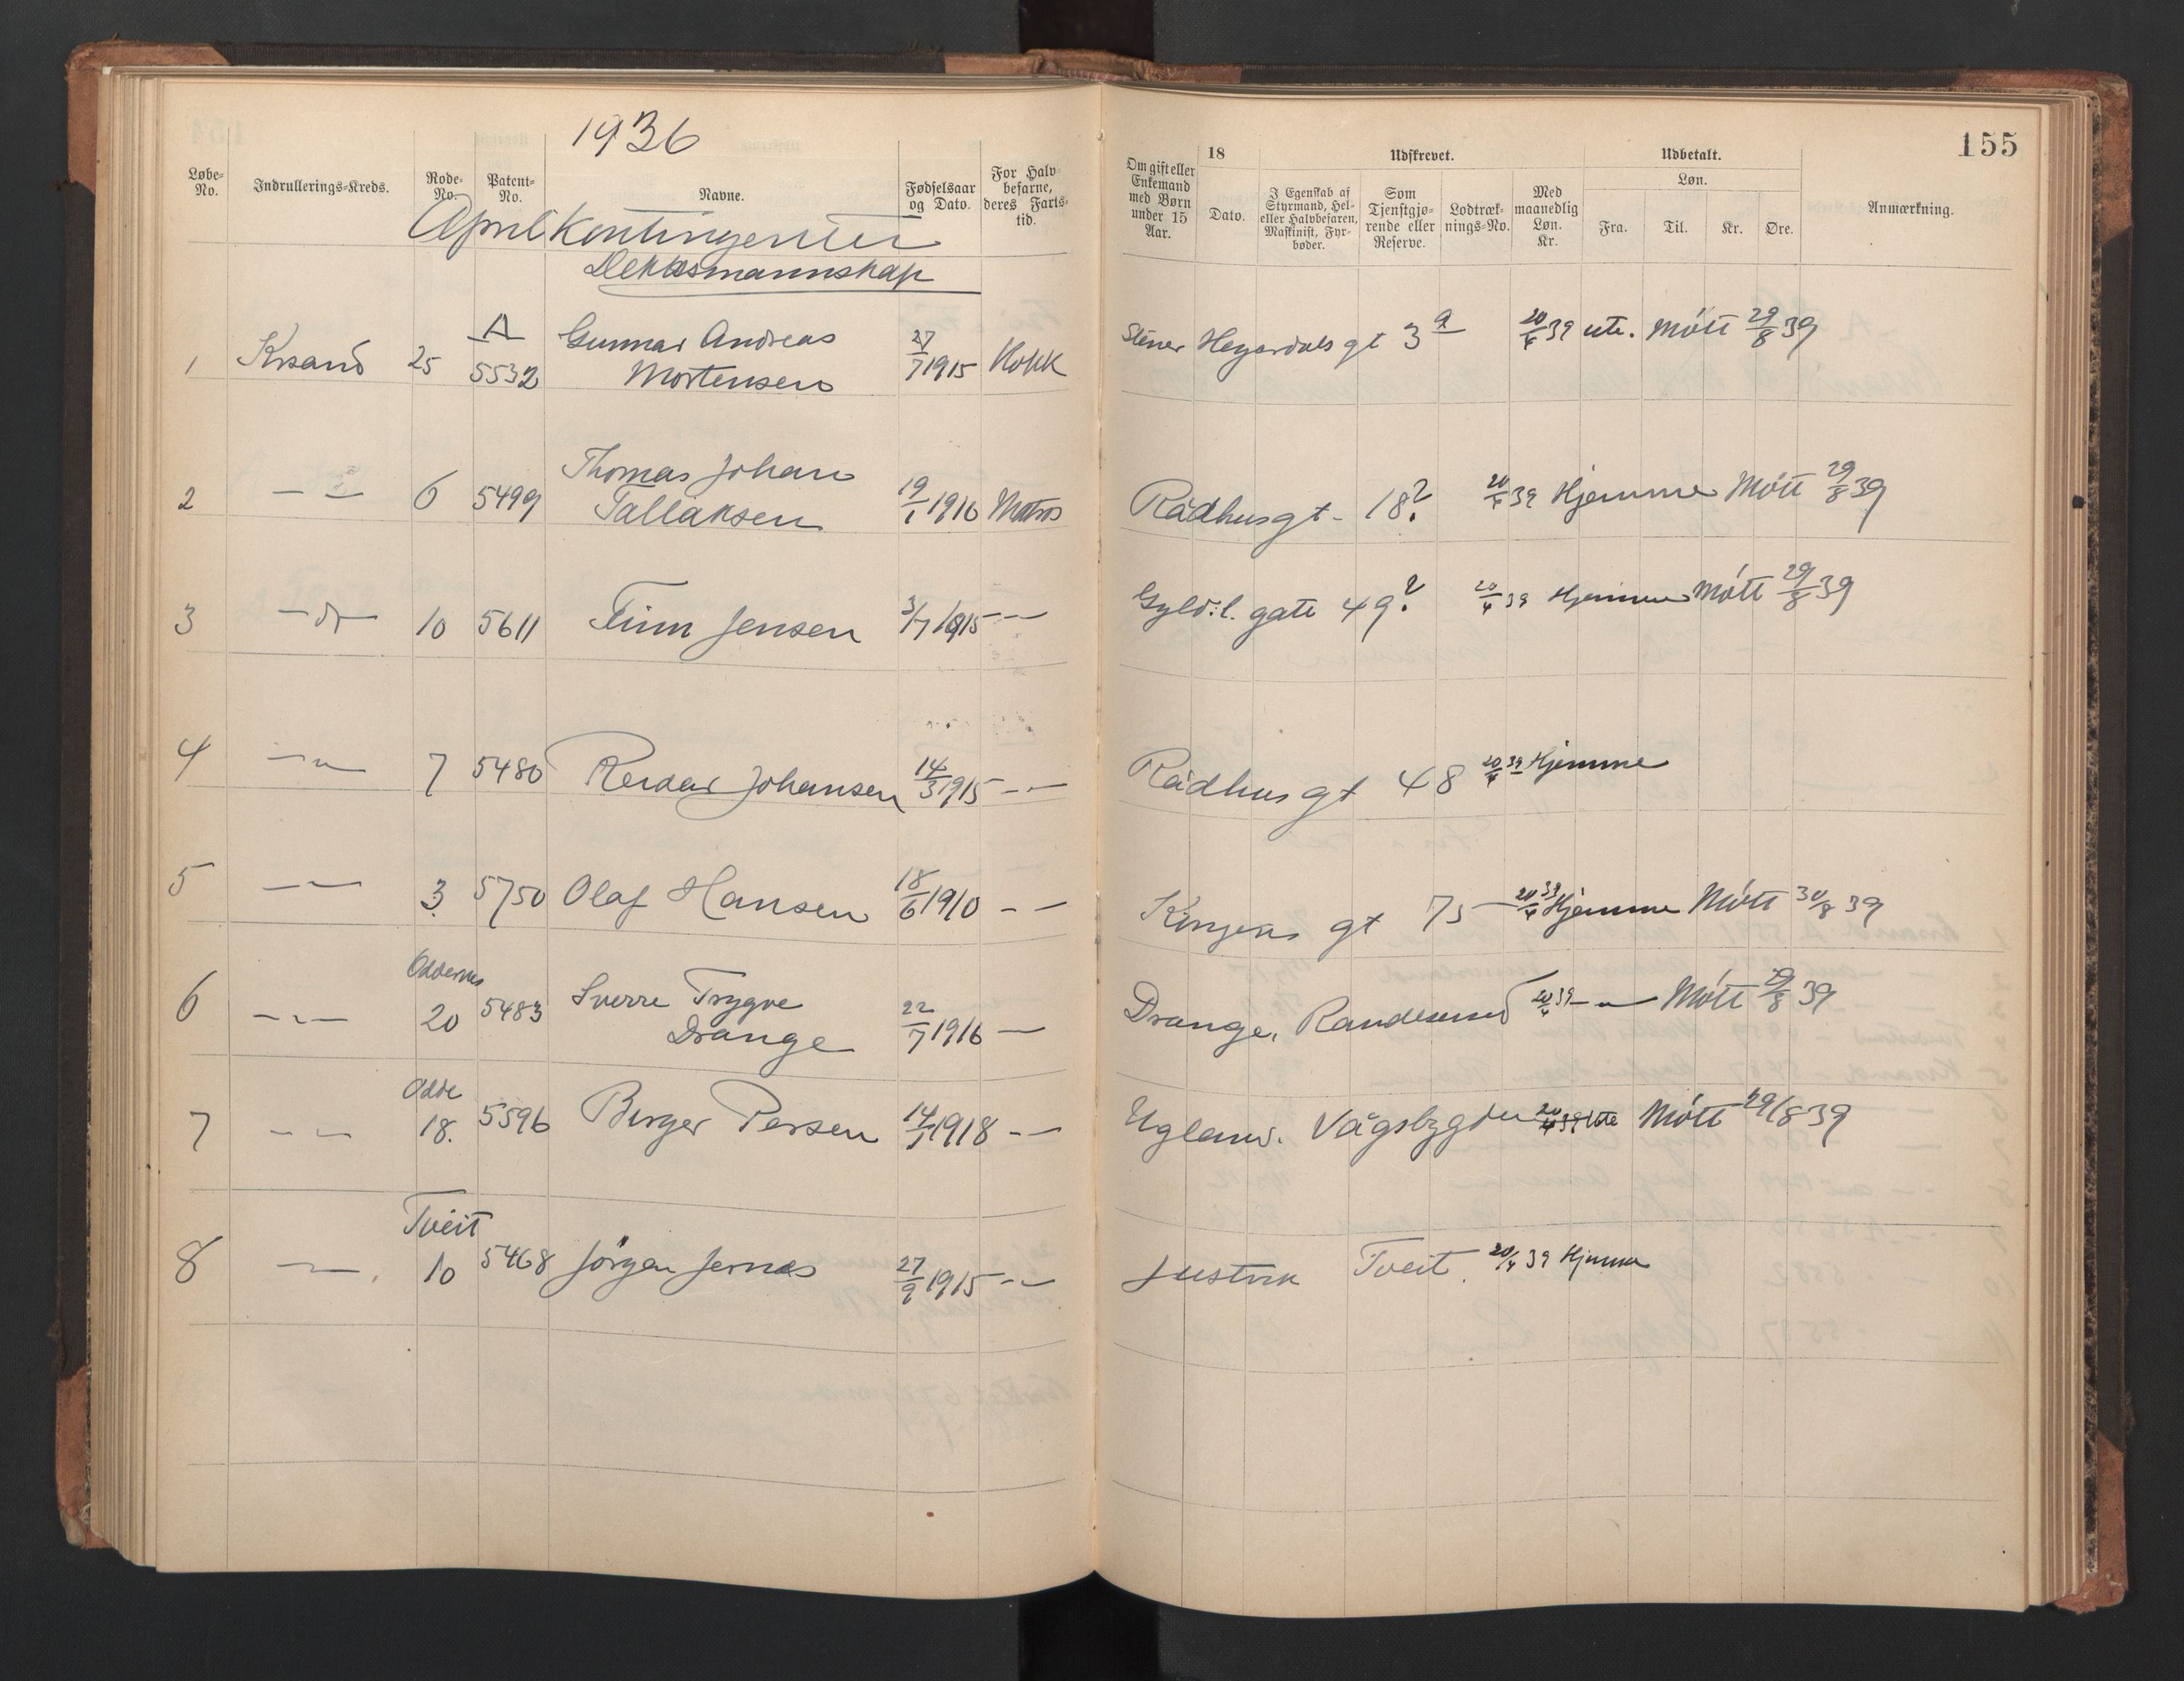 1936
155
Løbe-No. Indrullerings-Kreds. Rode-No. Patent-No. Navne. Fødselsaar og Dato. For Halvbefarne, deres Fartstid.
Om gift eller Enkemand med Børn under 15 Aar. 18 Dato. Udskrevet. I Egenskab af Styrmand, Hel- eller Halvbefaren, Maskinist, Fyrbøder. Som Tjenstgjørende eller Reserve. Lodtræknings-No. Med maanedlig Løn. Kr. Udbetalt. Løn. Fra. Til. Kr. Øre. Anmærkning.
April Kontingenter
Dekksmannskap
1 Krsand 25 A 5532 Gunnar Andreas Mortensen 27/7 1915 Kokk gt 3a 20/4 39 ute. Møtt 29/8 39
2 — " — 6 5499 Thomas Johan Tallaksen 19/1 1916 Matros Rådhusgt. 18? 20/4 39 Hjemme Møtt 29/8 39
3 — " — 10 5611 Finn Jensen 3/7 1915 — — Gyld.l. gate 49? 20/4 39 Hjemme Møtt 29/8 39
4 — " — 7 5480 Reidar Johansen 14/3 1915 — — Rådhusgt 48 20/4 39 Hjemme
5 — — 3 5750 Olaf Hansen 18/6 1910 — — Kongens gt 75 20/4 39 Hjemme Møtt 30/8 39
6 — " — Oddernes 20 5483 Sverre Trygve Drange 22/7 1916 — Drange, Randesund 20/4 39 — " — Møtt 29/8 39
7 — — Odde 18. 5596 Birger Persen 14/1 1918 — — Ugland. Vågsbygden 20/4 39 ute Møtt 29/8 39
8 — — Tveit 10 5468 Jørgen Jernes 27/9 1915 — — Justvik Tveit. 20/4 39 Hjemme